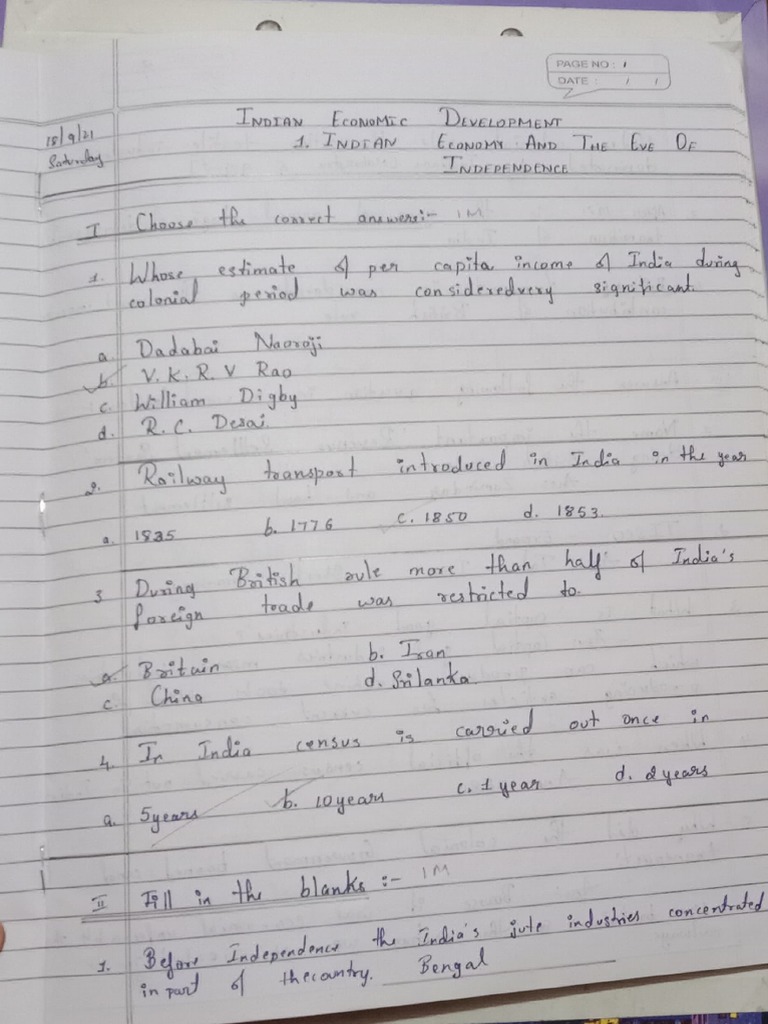 PAGE NO: 1
DATE: / /
18/9/21
Saturday
INDIAN ECONOMIC DEVELOPMENT
1. INDIAN ECONOMY AND THE EVE OF
INDEPENDENCE
I Choose the correct answers:- 1M
1. Whose estimate of per capita income of India during
colonial period was consideredvery significant.
a. Dadabai Naoroji
b. V.K.R.V Rao
c. William Digby
d. R.C. Desai
2. Railway transport introduced in India in the year
a. 1835 b. 1776 c. 1850 d. 1853.
3 During British rule more than half of India's
foreign trade was restricted to.
a. Britain b. Iran
c. China d. Srilanka
4. In India census is carried out once in
a. 5years b. 10years c. 1 year d. 2 years
II Fill in the blanks :- 1M
1. Before Independence the India's jute industries concentrated
in part of thecountry. Bengal